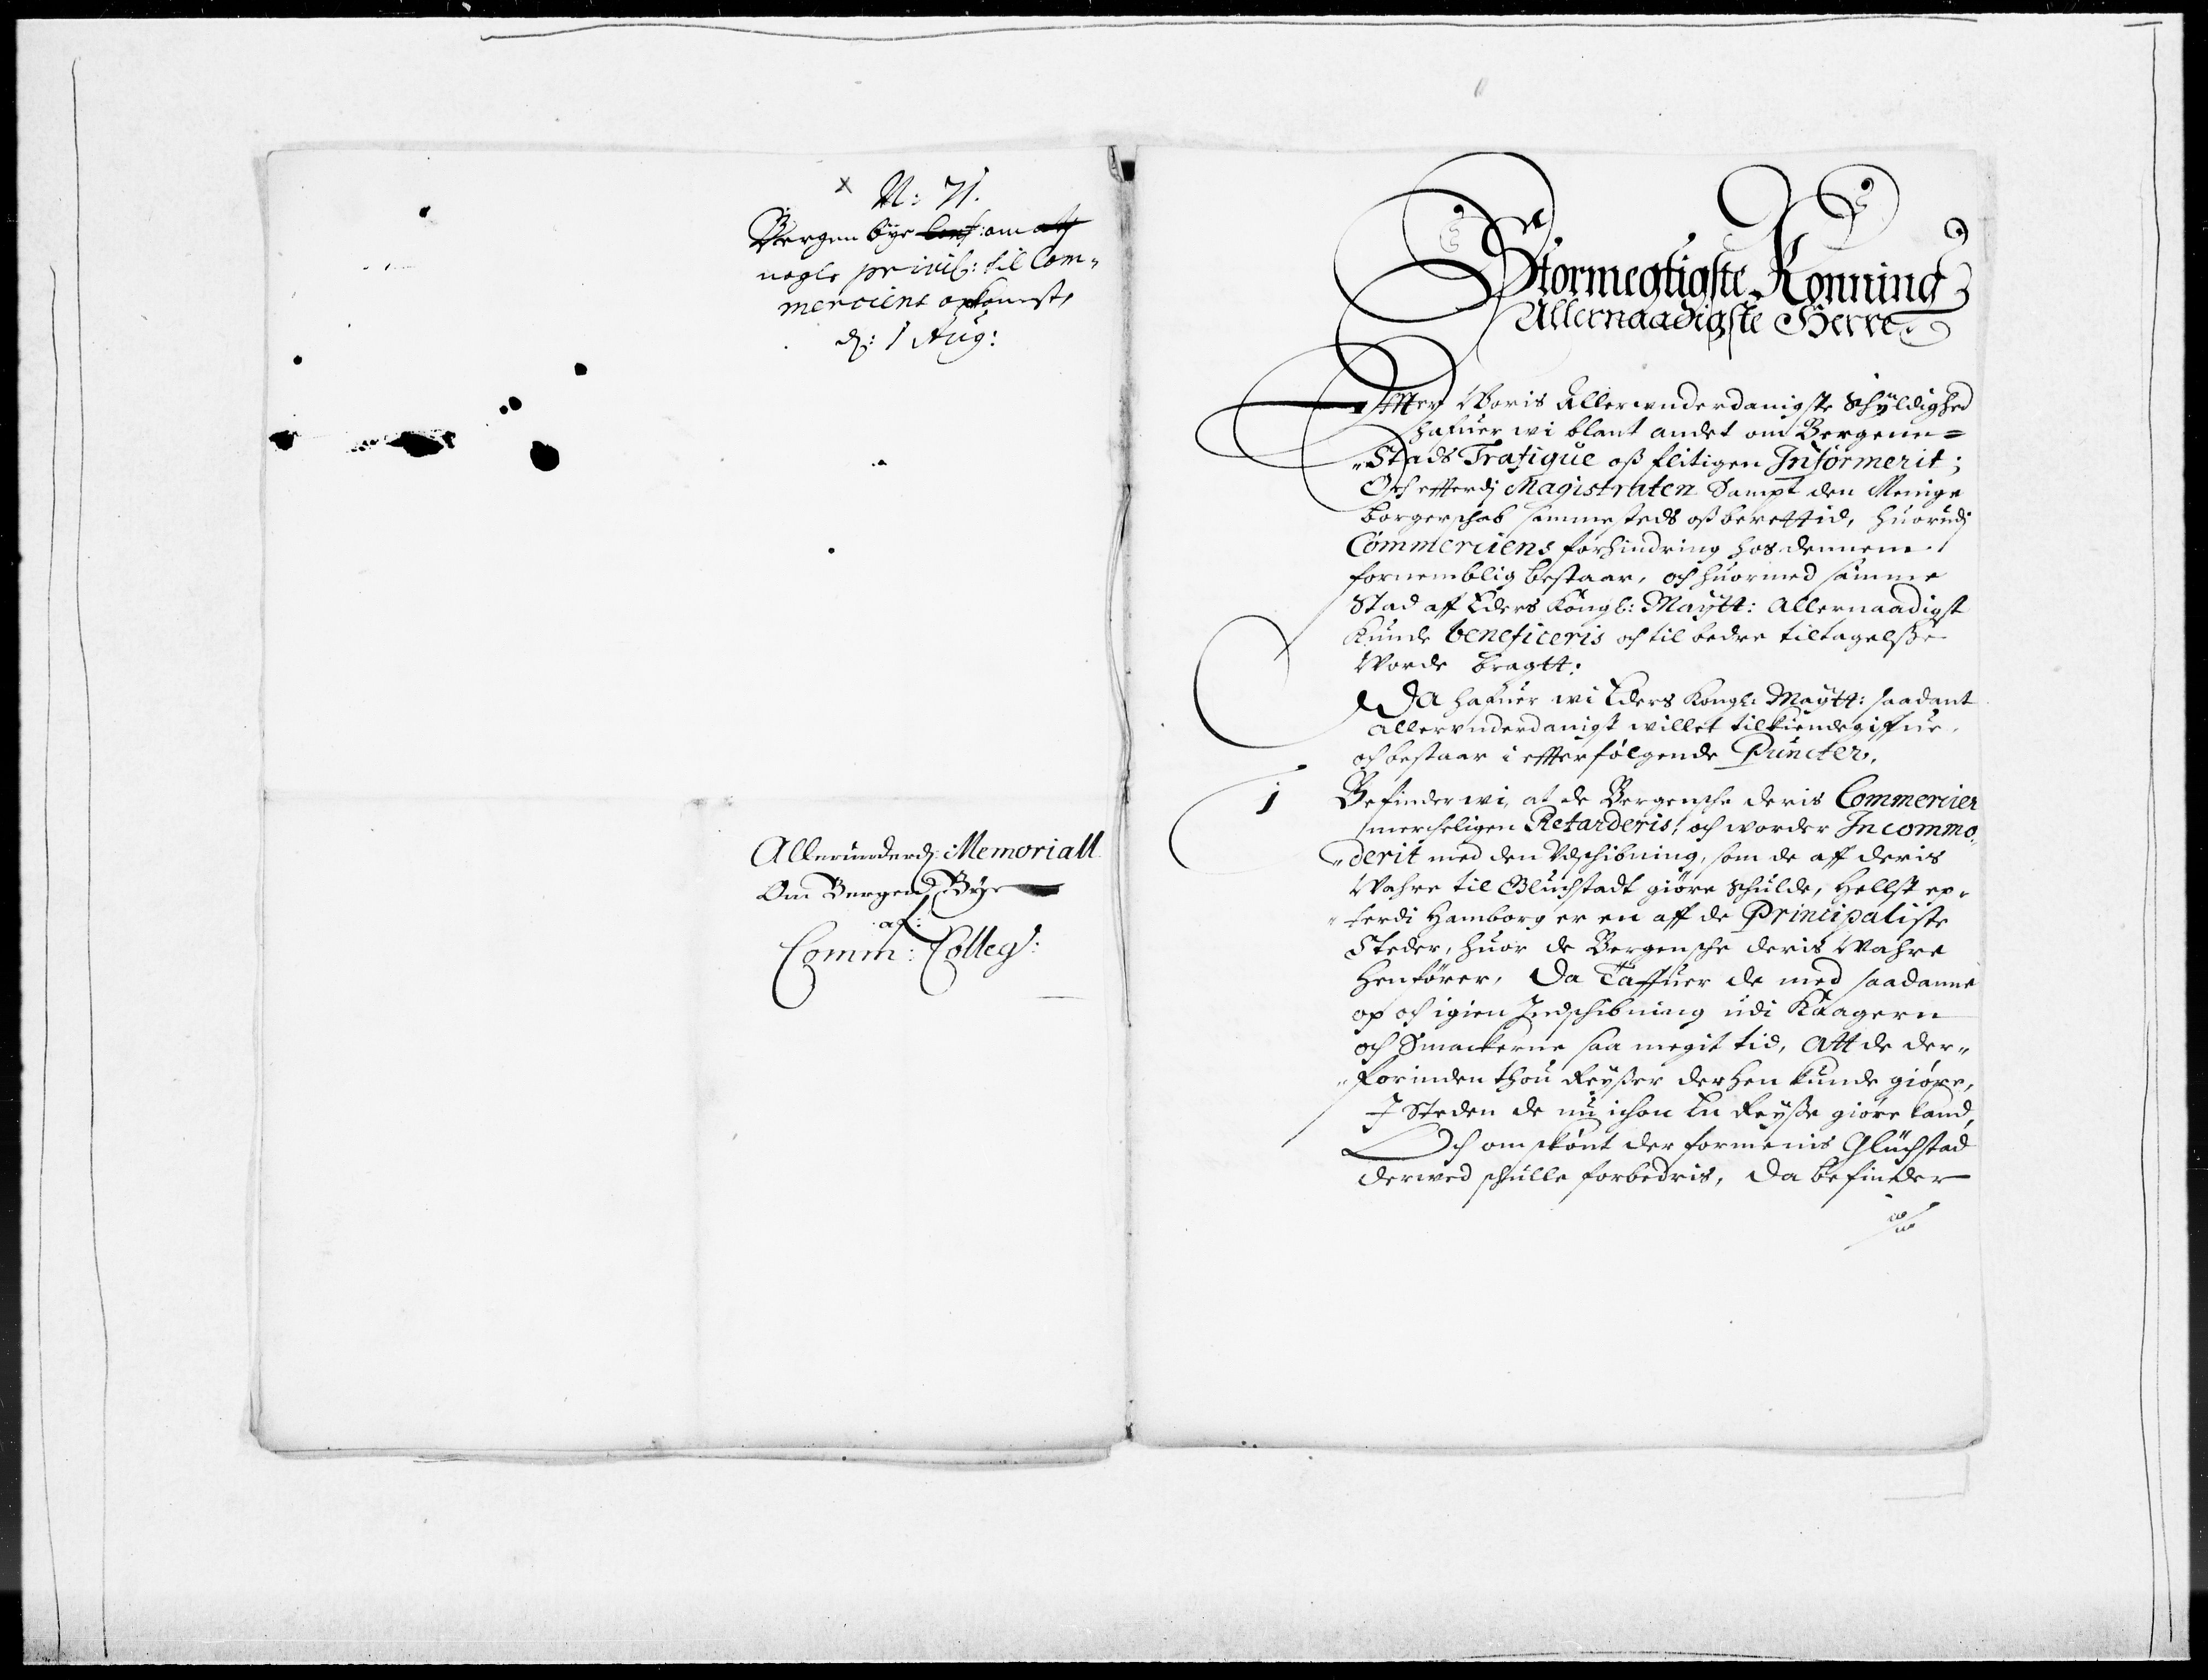 x N: 71.
Bergen bye Conf: om att
nogle privil: til Com¬
merciens opkomst,
d: 1 Aug:
Allerunderd: Memoriall
Om Bergens Bye
af:
Comm: Colleg:
Stormegtigste Konning
Allernaadigste Herre
Effter Woris Allerunderdanigste Schyldighed
hafuer wi blant andet om Bergenn=
Stads Trafique oß flitigen Informerit;
Och efterdj Magistraten Sampt den Menige
borgerschab sammesteds oß berettid, huorudj
Commerciens forhindring hos dennem
fornemblig bestaar, och huormed samme
Stad aff Eders Kongl: Maytt: allernaadigst
kunde beneficeris och til bedre tiltagelsse
Worde bragtt:
Da hafuer wi Eders Kongl: Maytt: saadant
allerunderdanigst willet tilkiendegiffue,
och bestaar i effterfølgende Puncter.
1 Befinder wi, at de Bergensche deris Commercier
mercheligen Retarderis, och worder Incommo¬
derit med den Udschibning, som de aff deris
Wahre til Gluchstadt giøre schulde, Hellst ep¬
terdi Hamborg er en aff de Principaliste
Steder, huor de Bergensche deris Wahre
henfører, Da Taffuer de med saadanne
op och igien Indschibning udi Kaagern
och Smackerne saa megit tid, att de der¬
forinden thou Reyßer derhen kunde giøre,
I Steden de nu ichon En Reyße giøre kand,
Och omskønt der formenis Glüchstad
derwed schulle forbedris, Da befinder